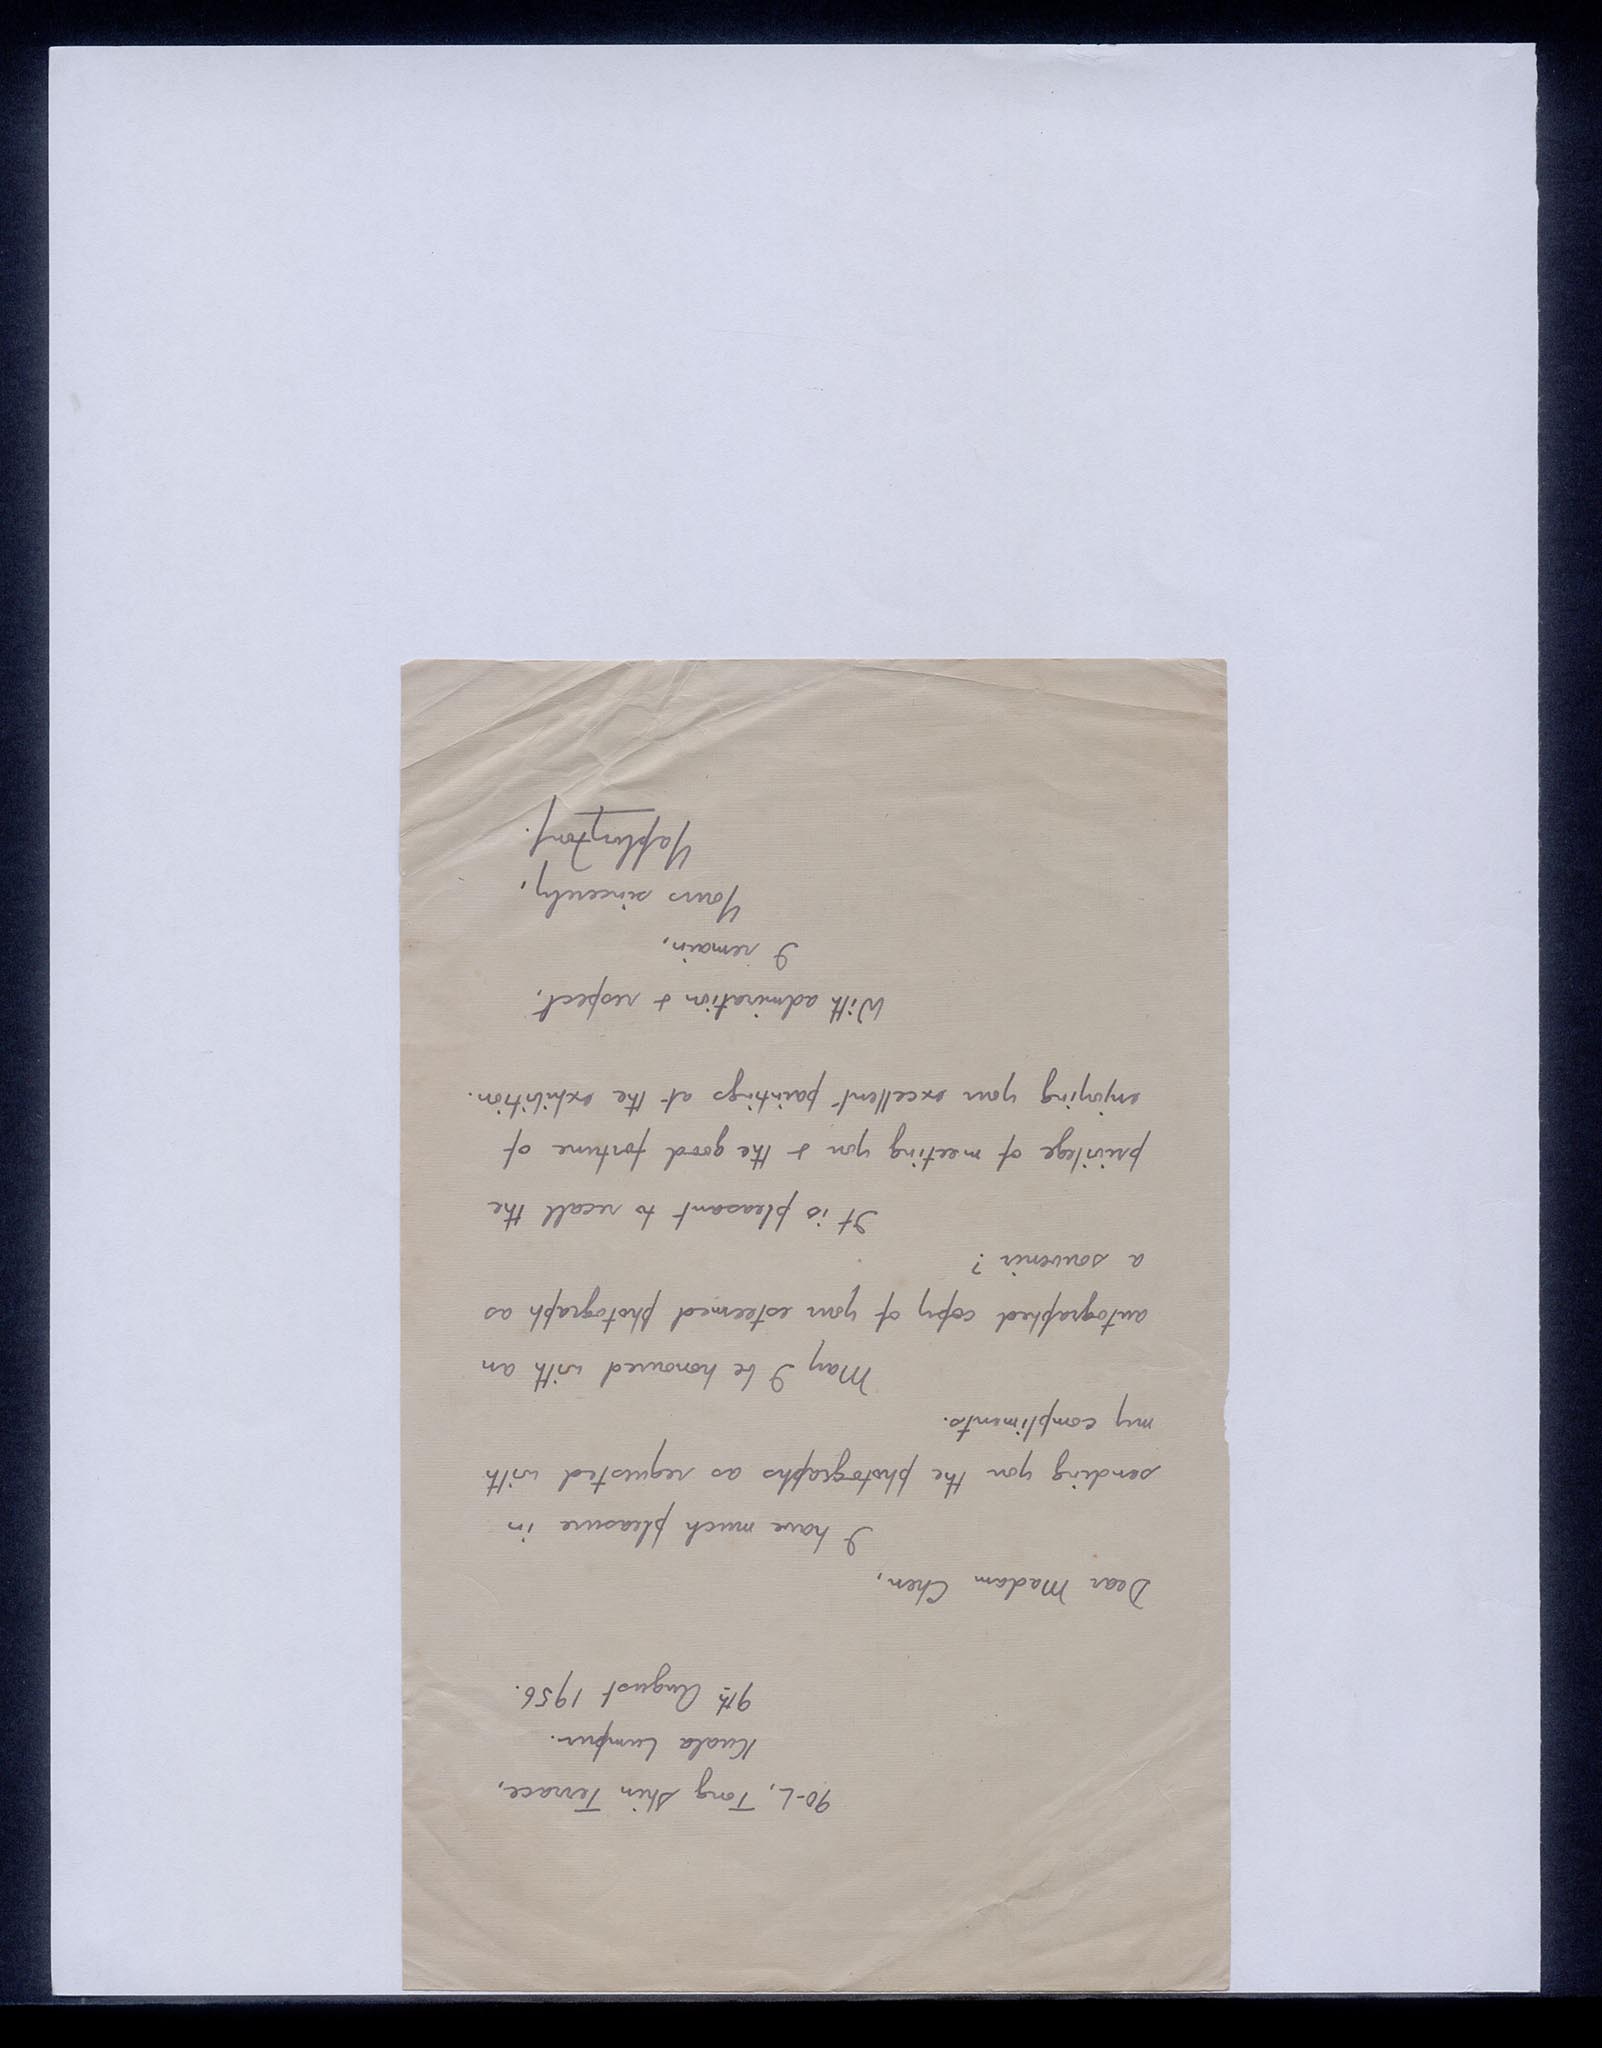 90-L, Tong Shin Terrace,
Kuala Lumpur.
9th August 1956.
Dear Madam Chen,
I have much pleasure in
sending you the photographs as requested with
my compliments.
May I be honoured with an
autographed copy of your esteemed photograph as
a souvenir?
It is pleasant to recall the
privilege of meeting you & the good fortune of
enjoying your excellent paintings at the exhibition.
With admiration & respect,
I remain,
Yours sincerely,